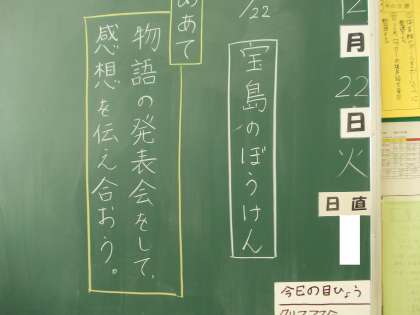 12
月
22
日
火
日直
今日の目ひょう
/22
宝島のぼうけん
めあて
物語の発表会をして、
感想を伝え合おう。